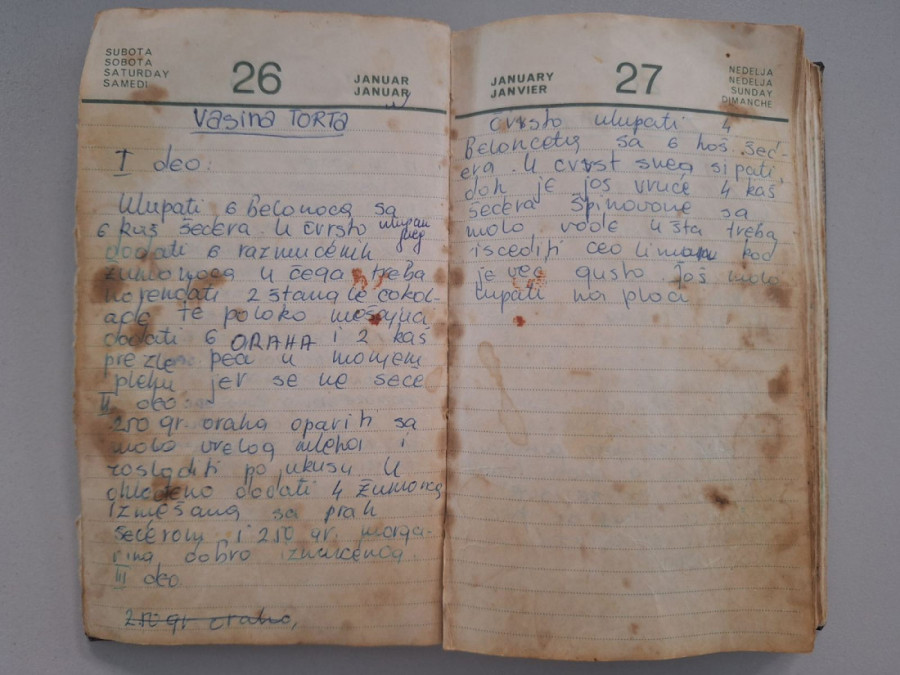 SUBOTA
SOBOTA
SATURDAY
SAMEDI
26
JANUAR
JANUAR
Vasina TORTA
I deo:
Ulupati 6 belonaca sa
6 kaš šećera. U čvrsto ulupan
sneg
dodati 6 razmućenih
žumonaca u čega treba
narendati 2 štangle čokol-
ade te polako mešajući
dodati 6 ORAHA i 2 kaš
prezle peći u manjem
plehu jer se ne seče
II deo
250 gr. oraha opariti sa
malo vrelog mleka i
zasladiti po ukusu U
ohlađeno dodati 4 žumonca
izmešana sa prah
šećerom i 250 gr. marga-
rina dobro izmućenog.
III deo
250 gr oraha,
JANUARY
JANVIER
27
NEDELJA
NEDELJA
SUNDAY
DIMANCHE
Čvrsto ulupati 4
beloncety sa 6 kaš šeć-
era. U čvrst sneg sipati,
dok je još vruće 4 kaš
šećera špinovane sa
malo vode u šta treba
iscediti ceo limun kad
je već gusto još malo
lupati na ploči